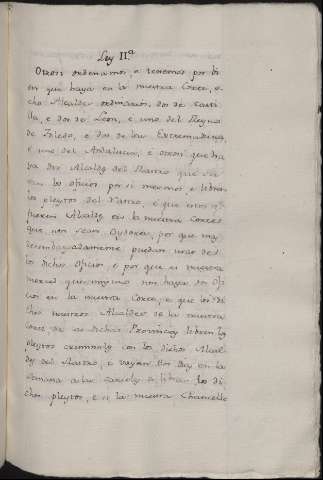 Ley II.a
Otrosi ordenamos, e tenemos por bi
en que haya en la nuestra Corte, o
cho Alcaldes ordinarios, dos de Casti
lla, e dos de Leon, e uno del Reyno
de Toledo, e dos de las Extremaduras,
e uno del Andalucia, e otrosi que ha
ya dos Alcaldes del Rastro que
los oficios por si mesmos e libren
los pleytos del Rastro, e que estos
Alcaldes en la nuestra Corte
que non sean Oydores, por que mas
puedan usar de
los dichos oficios, e por que es nuestra
merced que ninguno non haya dos Ofi
cios en la nuestra Corte, e que los di
chos nuestros Alcaldes de la nuestra
Corte de las dichas Provincias libren los
pleytos criminales con los dichos Alcal
des del Rastro, e vayan dos Dias en la
semana a las carceles a librar los di
chos pleytos, e si la nuestra Chancelle